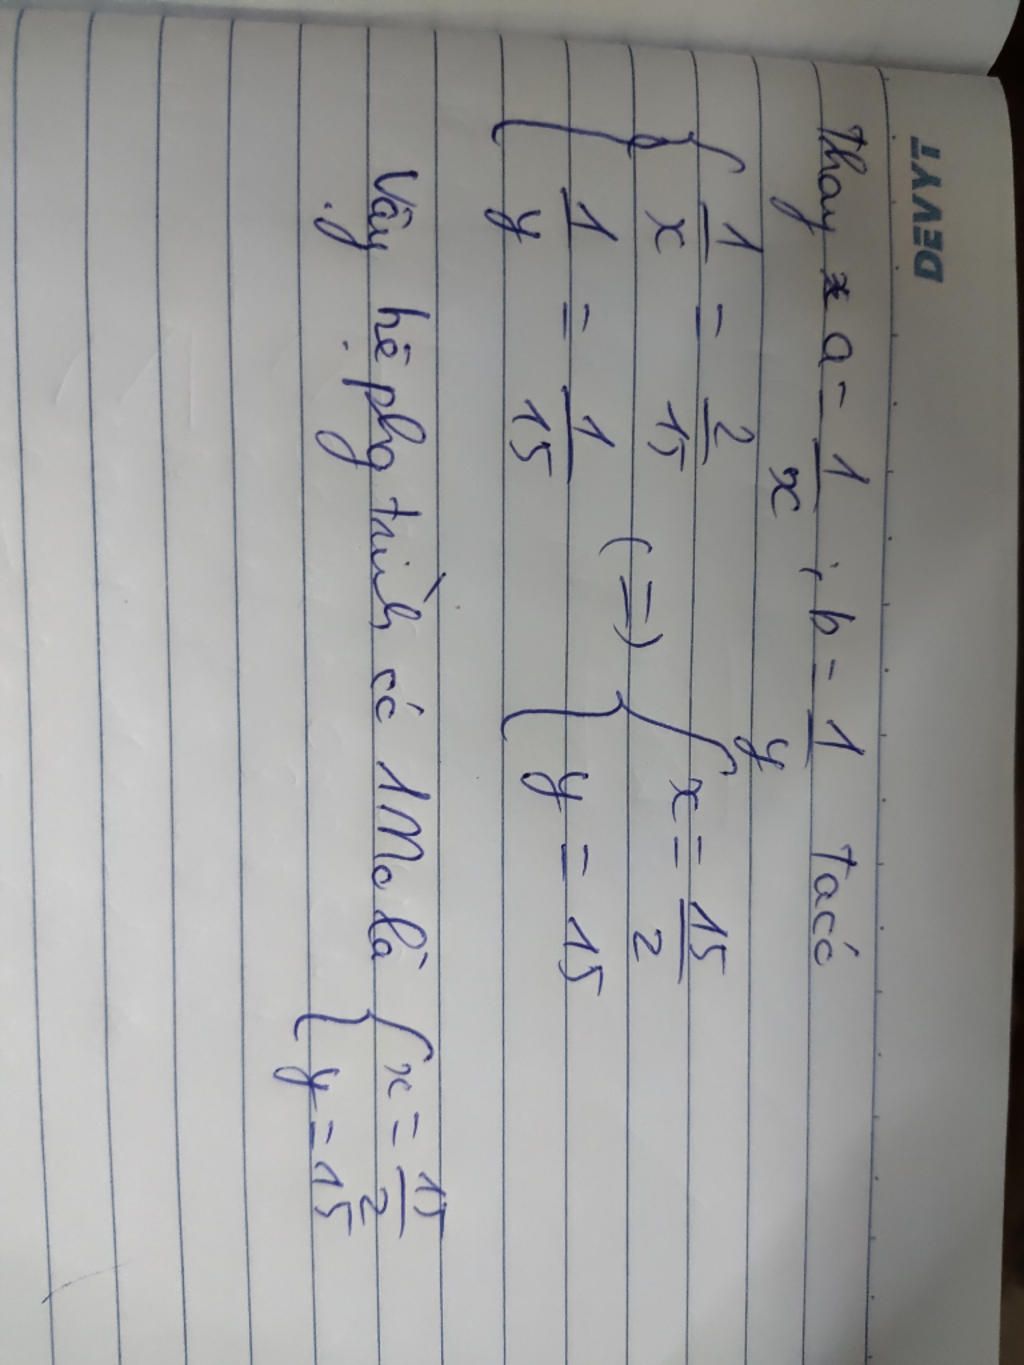 DEVYT
Thay a = 1/x ; b = 1/y ta có
{ 1/x = 2/15
{ 1/y = 1/15
(=)
{ x = 15/2
{ y = 15
Vậy hệ phg trình có 1 No là { x = 15/2
{ y = 15